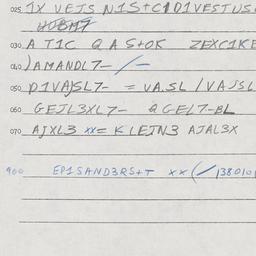 025 IX VEJS N1S+C1D1VESTUS
030 A T1C Q A S+OK ZEXC1KE
040 )AMANDL7- /-
050 D1VAJSL7- = VA.SL / VAJSL
060 GEJL3XL7- QGEL7-BL
070 AJXL3 xx= KLEJN3 AJAL3X
900 EP1SAND3RS+T xx (/ 138010